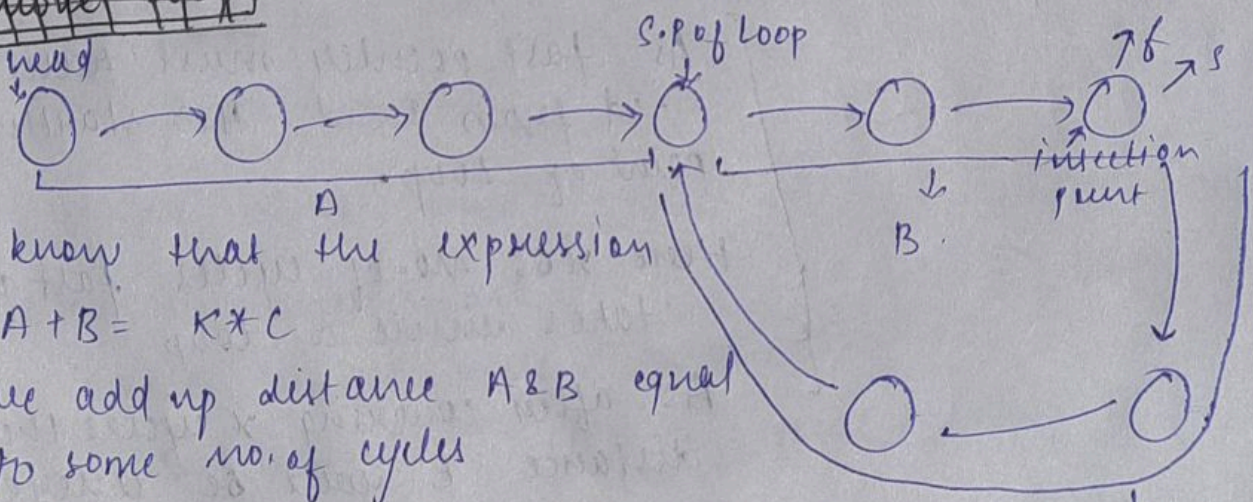 head
S.P of Loop
f
s
A
B.
insection
point
know that the expression
A + B = K * C
we add up distance A & B equal
to some no. of cycles